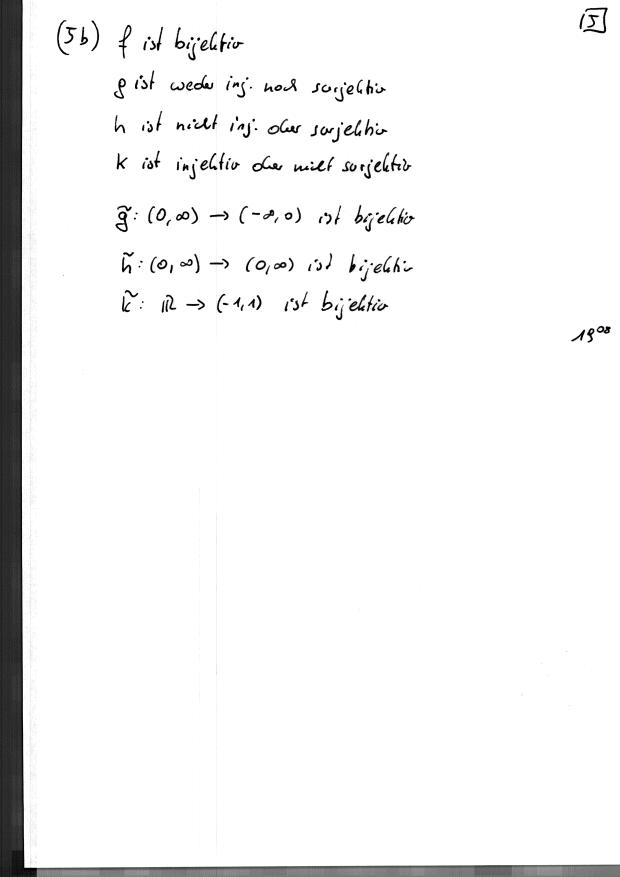 15
(5b) f ist bijektiv
g ist weder inj. noch surjektiv
h ist nicht inj. aber surjektiv
k ist injektiv aber nicht surjektiv
g̃: (0,∞) → (-∞,0) ist bijektiv
h̃: (0,∞) → (0,∞) ist bijektiv
k̃: ℝ → (-1,1) ist bijektiv
19⁰⁸